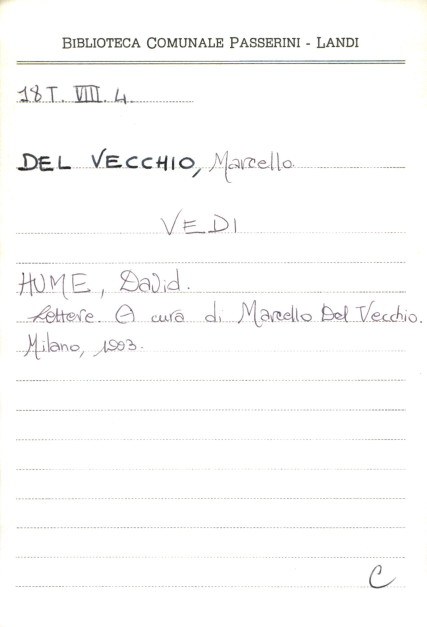 BIBLIOTECA COMUNALE PASSERINI - LANDI
18 T. VIII. 4.
DEL VECCHIO, Marcello
VEDI
HUME, David.
Lettere. A cura di Marcello Del Vecchio.
Milano, 1983.
C